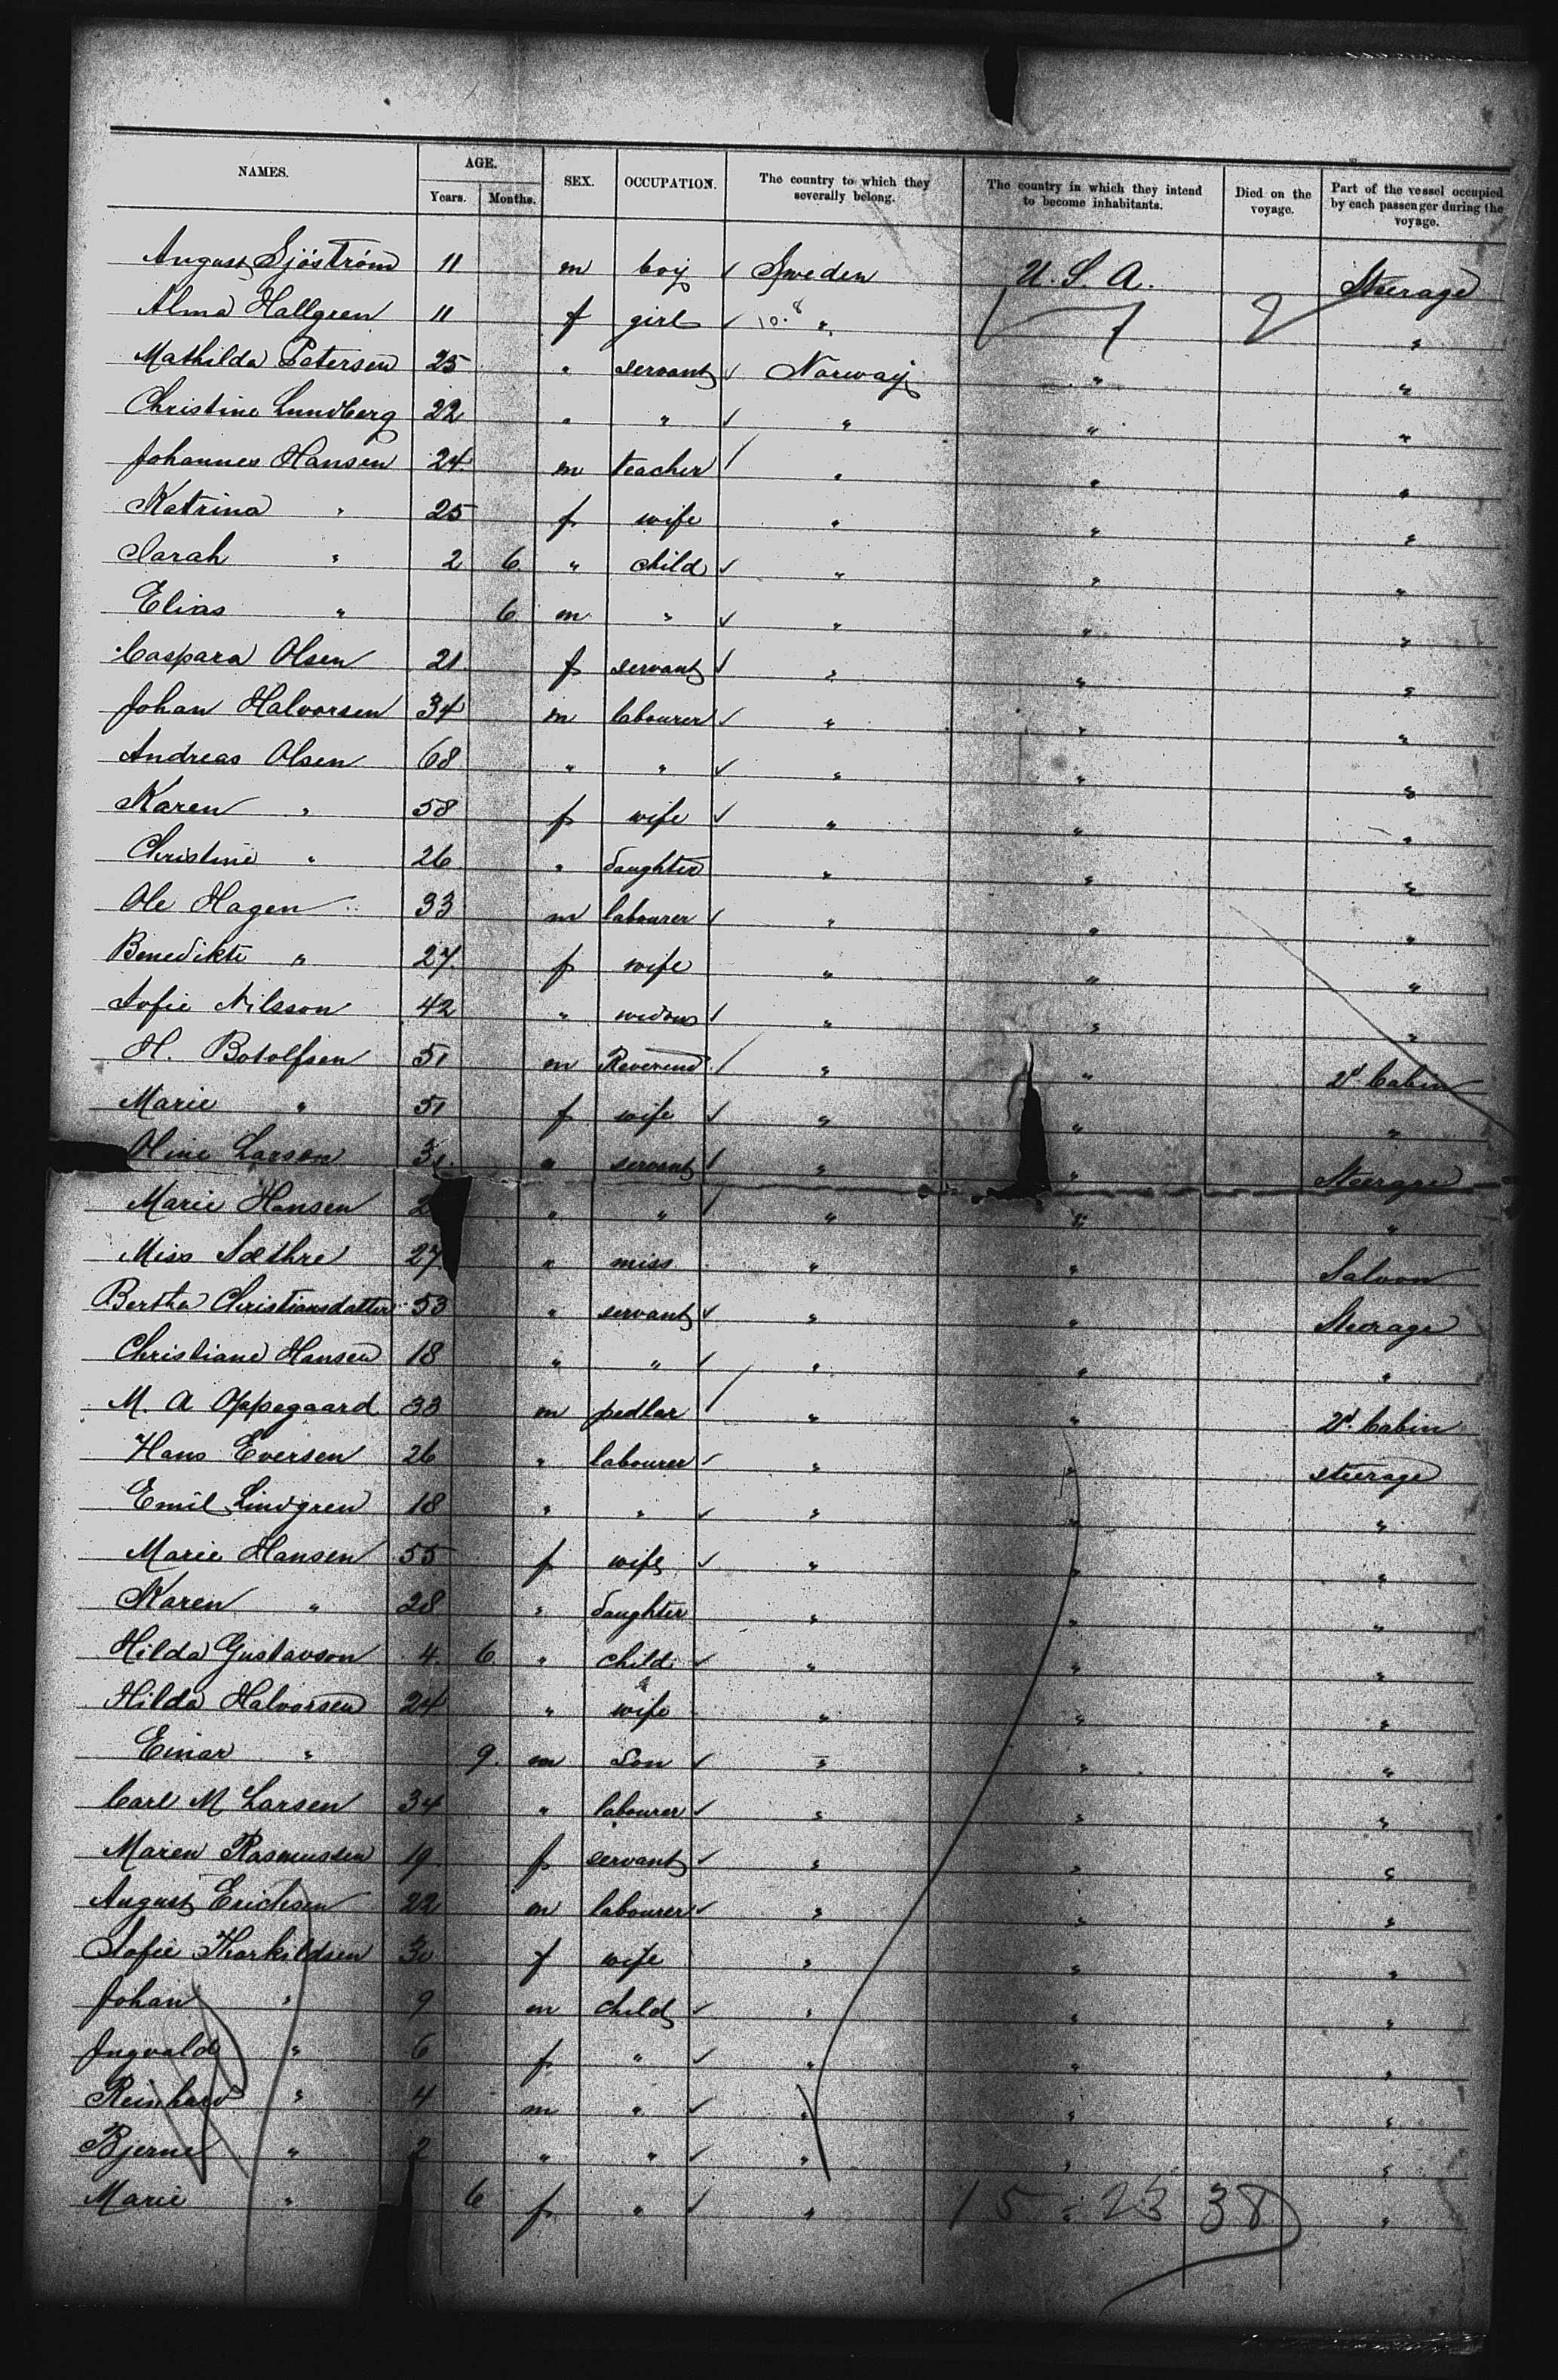 NAMES. AGE. SEX. OCCUPATION. The country to which they severally belong. The country in which they intend to become inhabitants. Died on the voyage. Part of the vessel occupied by each passenger during the voyage.
Years. Months.
August Sjöström 11 m boy ✓ Sweden U. S. A. Steerage
Alma Hallgren 11 f girl ✓ " "
Mathilda Petersen 25 " servant ✓ Norway " "
Christine Lundberg 22 " " ✓ " " "
Johannes Hansen 24 m teacher / " " "
Katrina " 25 f wife " " "
Sarah " 2 6 " child ✓ " " "
Elias " 6 m " ✓ " " "
Caspara Olsen 21 f servant ✓ " " "
Johan Halvorsen 34 m labourer ✓ " " "
Andreas Olsen 68 " " ✓ " " "
Karen " 58 f wife ✓ " " "
Christine " 26 " daughter " " "
Ole Hagen 33 m labourer ✓ " " "
Benedikte " 27 f wife " " "
Sofie Nilsson 42 " widow ✓ " " "
H. Botolfsen 51 m Reverend / " " 2d Cabin
Marie " 51 f wife ✓ " " "
Oline Larson 31 " servant ✓ " " Steerage
Marie Hansen 2 " " / " " "
Miss Sæthre 27 " miss " " Saloon
Bertha Christiansdatter 53 " servant ✓ " " Steerage
Christiane Hansen 18 " " ✓ " " "
M. A Oppegaard 33 m pedlar / " " 2d Cabin
Hans Eversen 26 " labourer ✓ " " steerage
Emil Lindgren 18 " " ✓ " " "
Marie Hansen 55 f wife ✓ " " "
Karen " 28 " daughter " " "
Hilda Gustavson 4 6 " child ✓ " " "
Hilda Halvorsen 24 " wife " " "
Einar " 9 m Son ✓ " " "
Carl M Larsen 34 " labourer ✓ " " "
Maren Rasmussen 19 f servant ✓ " " "
August Erichsen 22 m labourer ✓ " " "
Sofie Thorkildsen 30 f wife " " "
Johan " 9 m child ✓ " " "
Ingvald " 6 f " ✓ " " "
Reinhard " 4 m " ✓ " " "
Bjerne " 2 " " ✓ " " "
Marie " 6 f " ✓ " " "
15 23 38